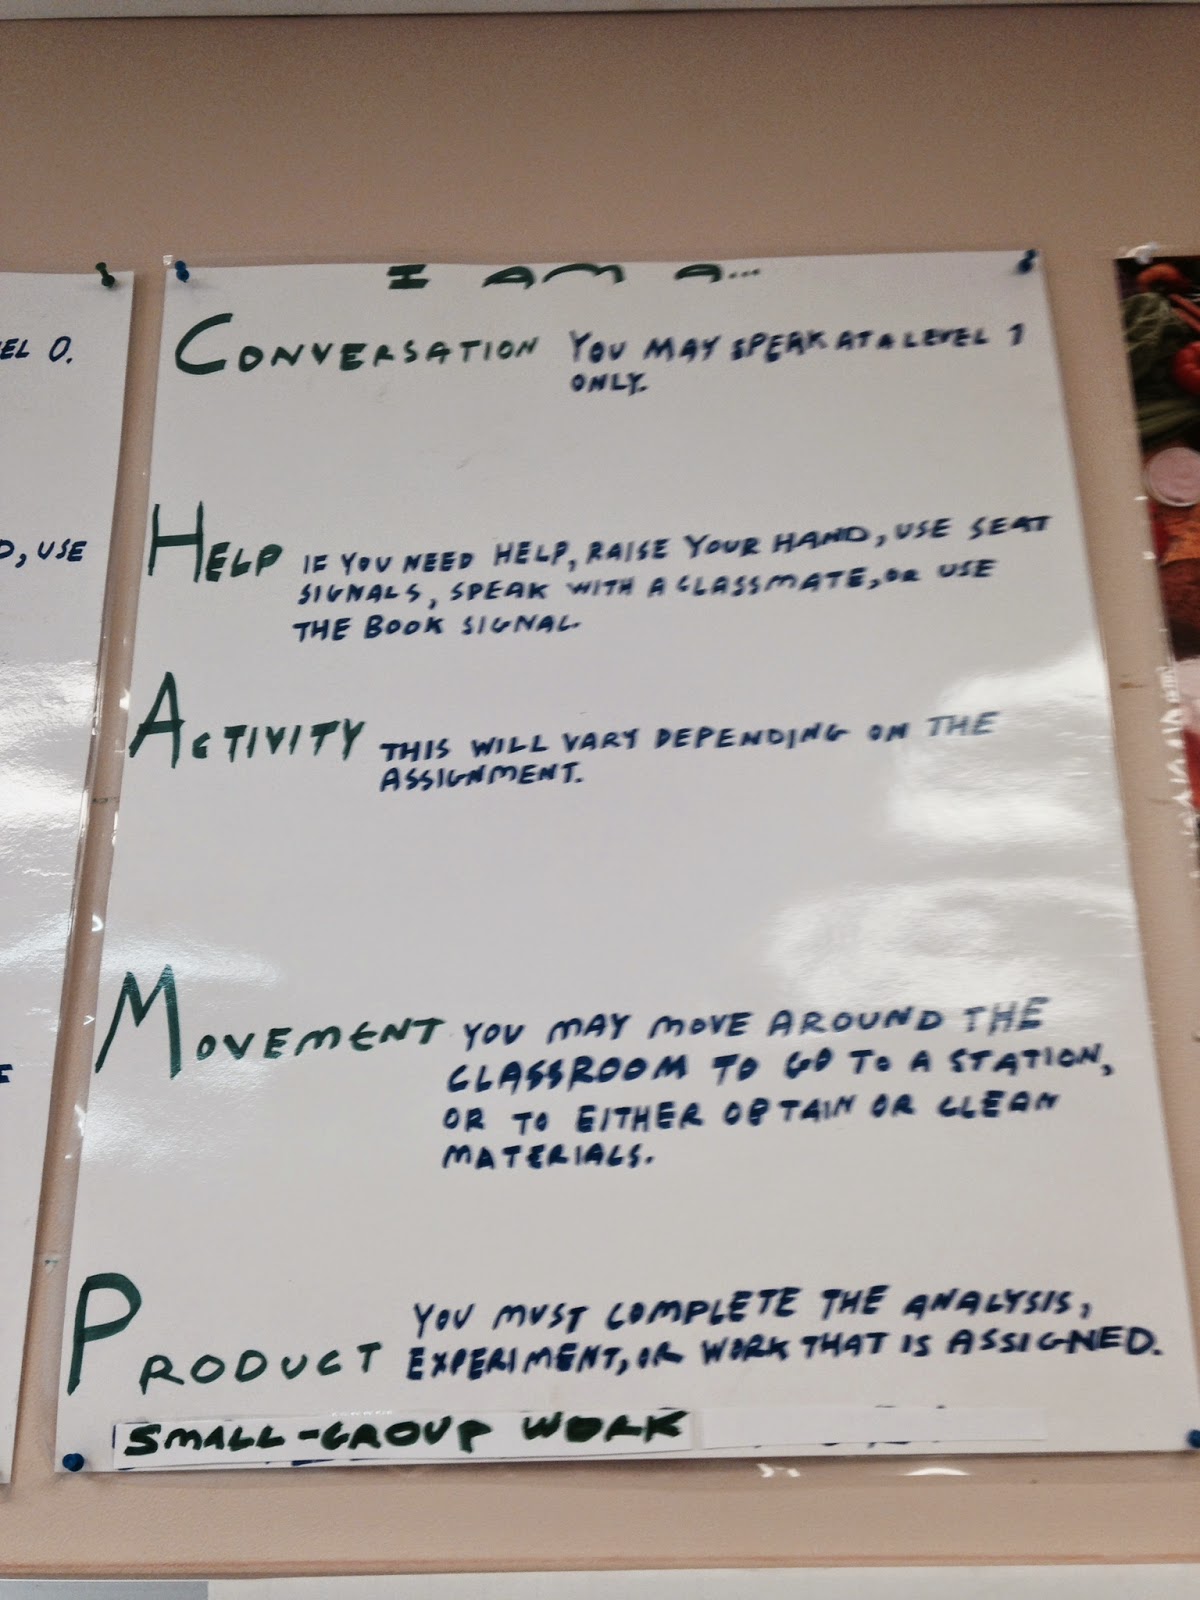 EL 0.
D, USE
I AM A...
CONVERSATION YOU MAY SPEAK AT A LEVEL 1
ONLY.
HELP IF YOU NEED HELP, RAISE YOUR HAND, USE SEAT
SIGNALS, SPEAK WITH A CLASSMATE, OR USE
THE BOOK SIGNAL.
ACTIVITY THIS WILL VARY DEPENDING ON THE
ASSIGNMENT.
MOVEMENT YOU MAY MOVE AROUND THE
CLASSROOM TO GO TO A STATION,
OR TO EITHER OBTAIN OR CLEAN
MATERIALS.
PRODUCT YOU MUST COMPLETE THE ANALYSIS,
EXPERIMENT, OR WORK THAT IS ASSIGNED.
SMALL-GROUP WORK